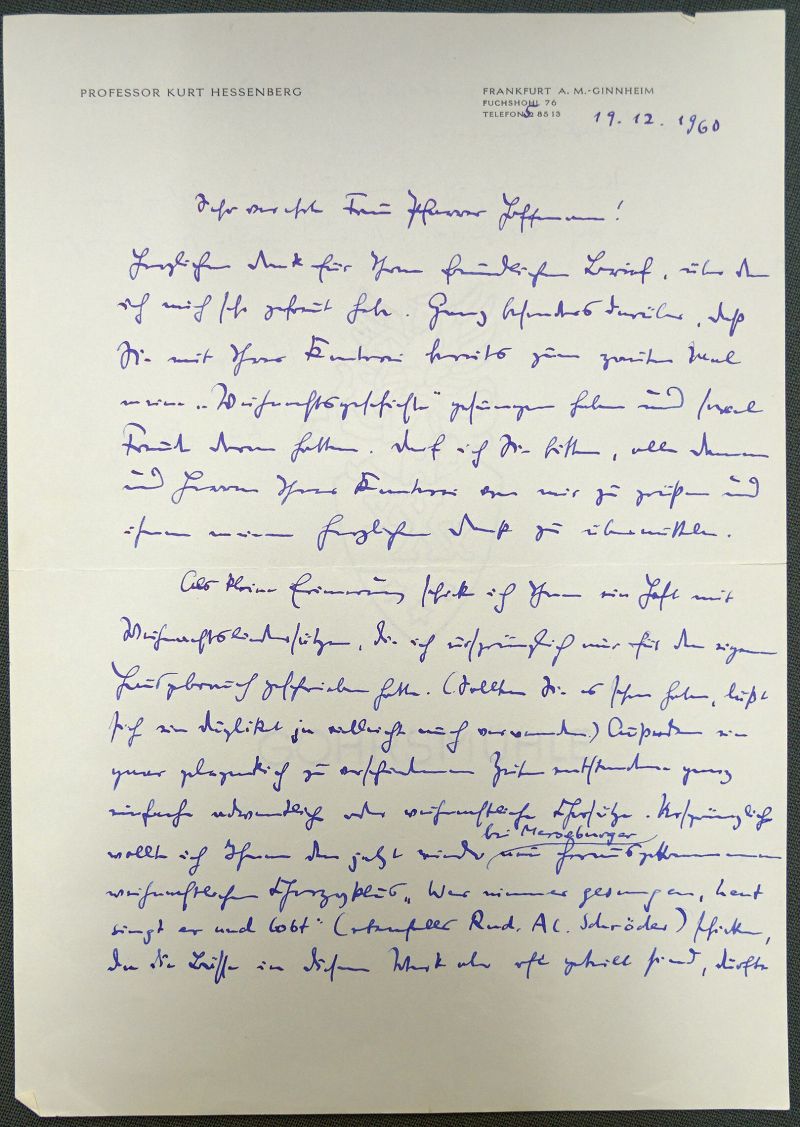 PROFESSOR KURT HESSENBERG
FRANKFURT A. M.-GINNHEIM
FUCHSHOHL 76
TELEFON 5 8513
19. 12. 1960
Sehr verehrte Frau Pfarrer Hoffmann!
Herzlichen Dank für Ihren freundlichen Brief, über den
ich mich sehr gefreut habe. Ganz besonders darüber, daß
Sie mit Ihrer Kantorei bereits zum zweiten Mal
meine „Weihnachtsgeschichte" gesungen haben und soviel
Freude daran hatten. Darf ich Sie bitten, alle Damen
und Herren Ihrer Kantorei von mir zu grüßen und
ihnen meinen herzlichen Dank zu übermitteln.
Als kleine Erinnerung schicke ich Ihnen ein Heft mit
Weihnachtsliedersätzen, die ich ursprünglich nur für den eigenen
Hausgebrauch geschrieben hatte. (Sollten Sie es schon haben, läßt
sich ein Duplikat ja vielleicht auch verwenden.) Außerdem ein
paar gelegentlich zu verschiedenen Zeiten entstandene ganz
einfache adventliche oder weihnachtliche Chorsätze. Ursprünglich
bei Merseburger
wollte ich Ihnen den jetzt wieder neu herausgekommenen
weihnachtlichen Chorzyklus „Wer nimmer gesungen, heut
singt er und lobt" (ebenfalls Rud. Al. Schröder) schicken,
da die Bässe in diesem Werk aber oft geteilt sind, dürfte